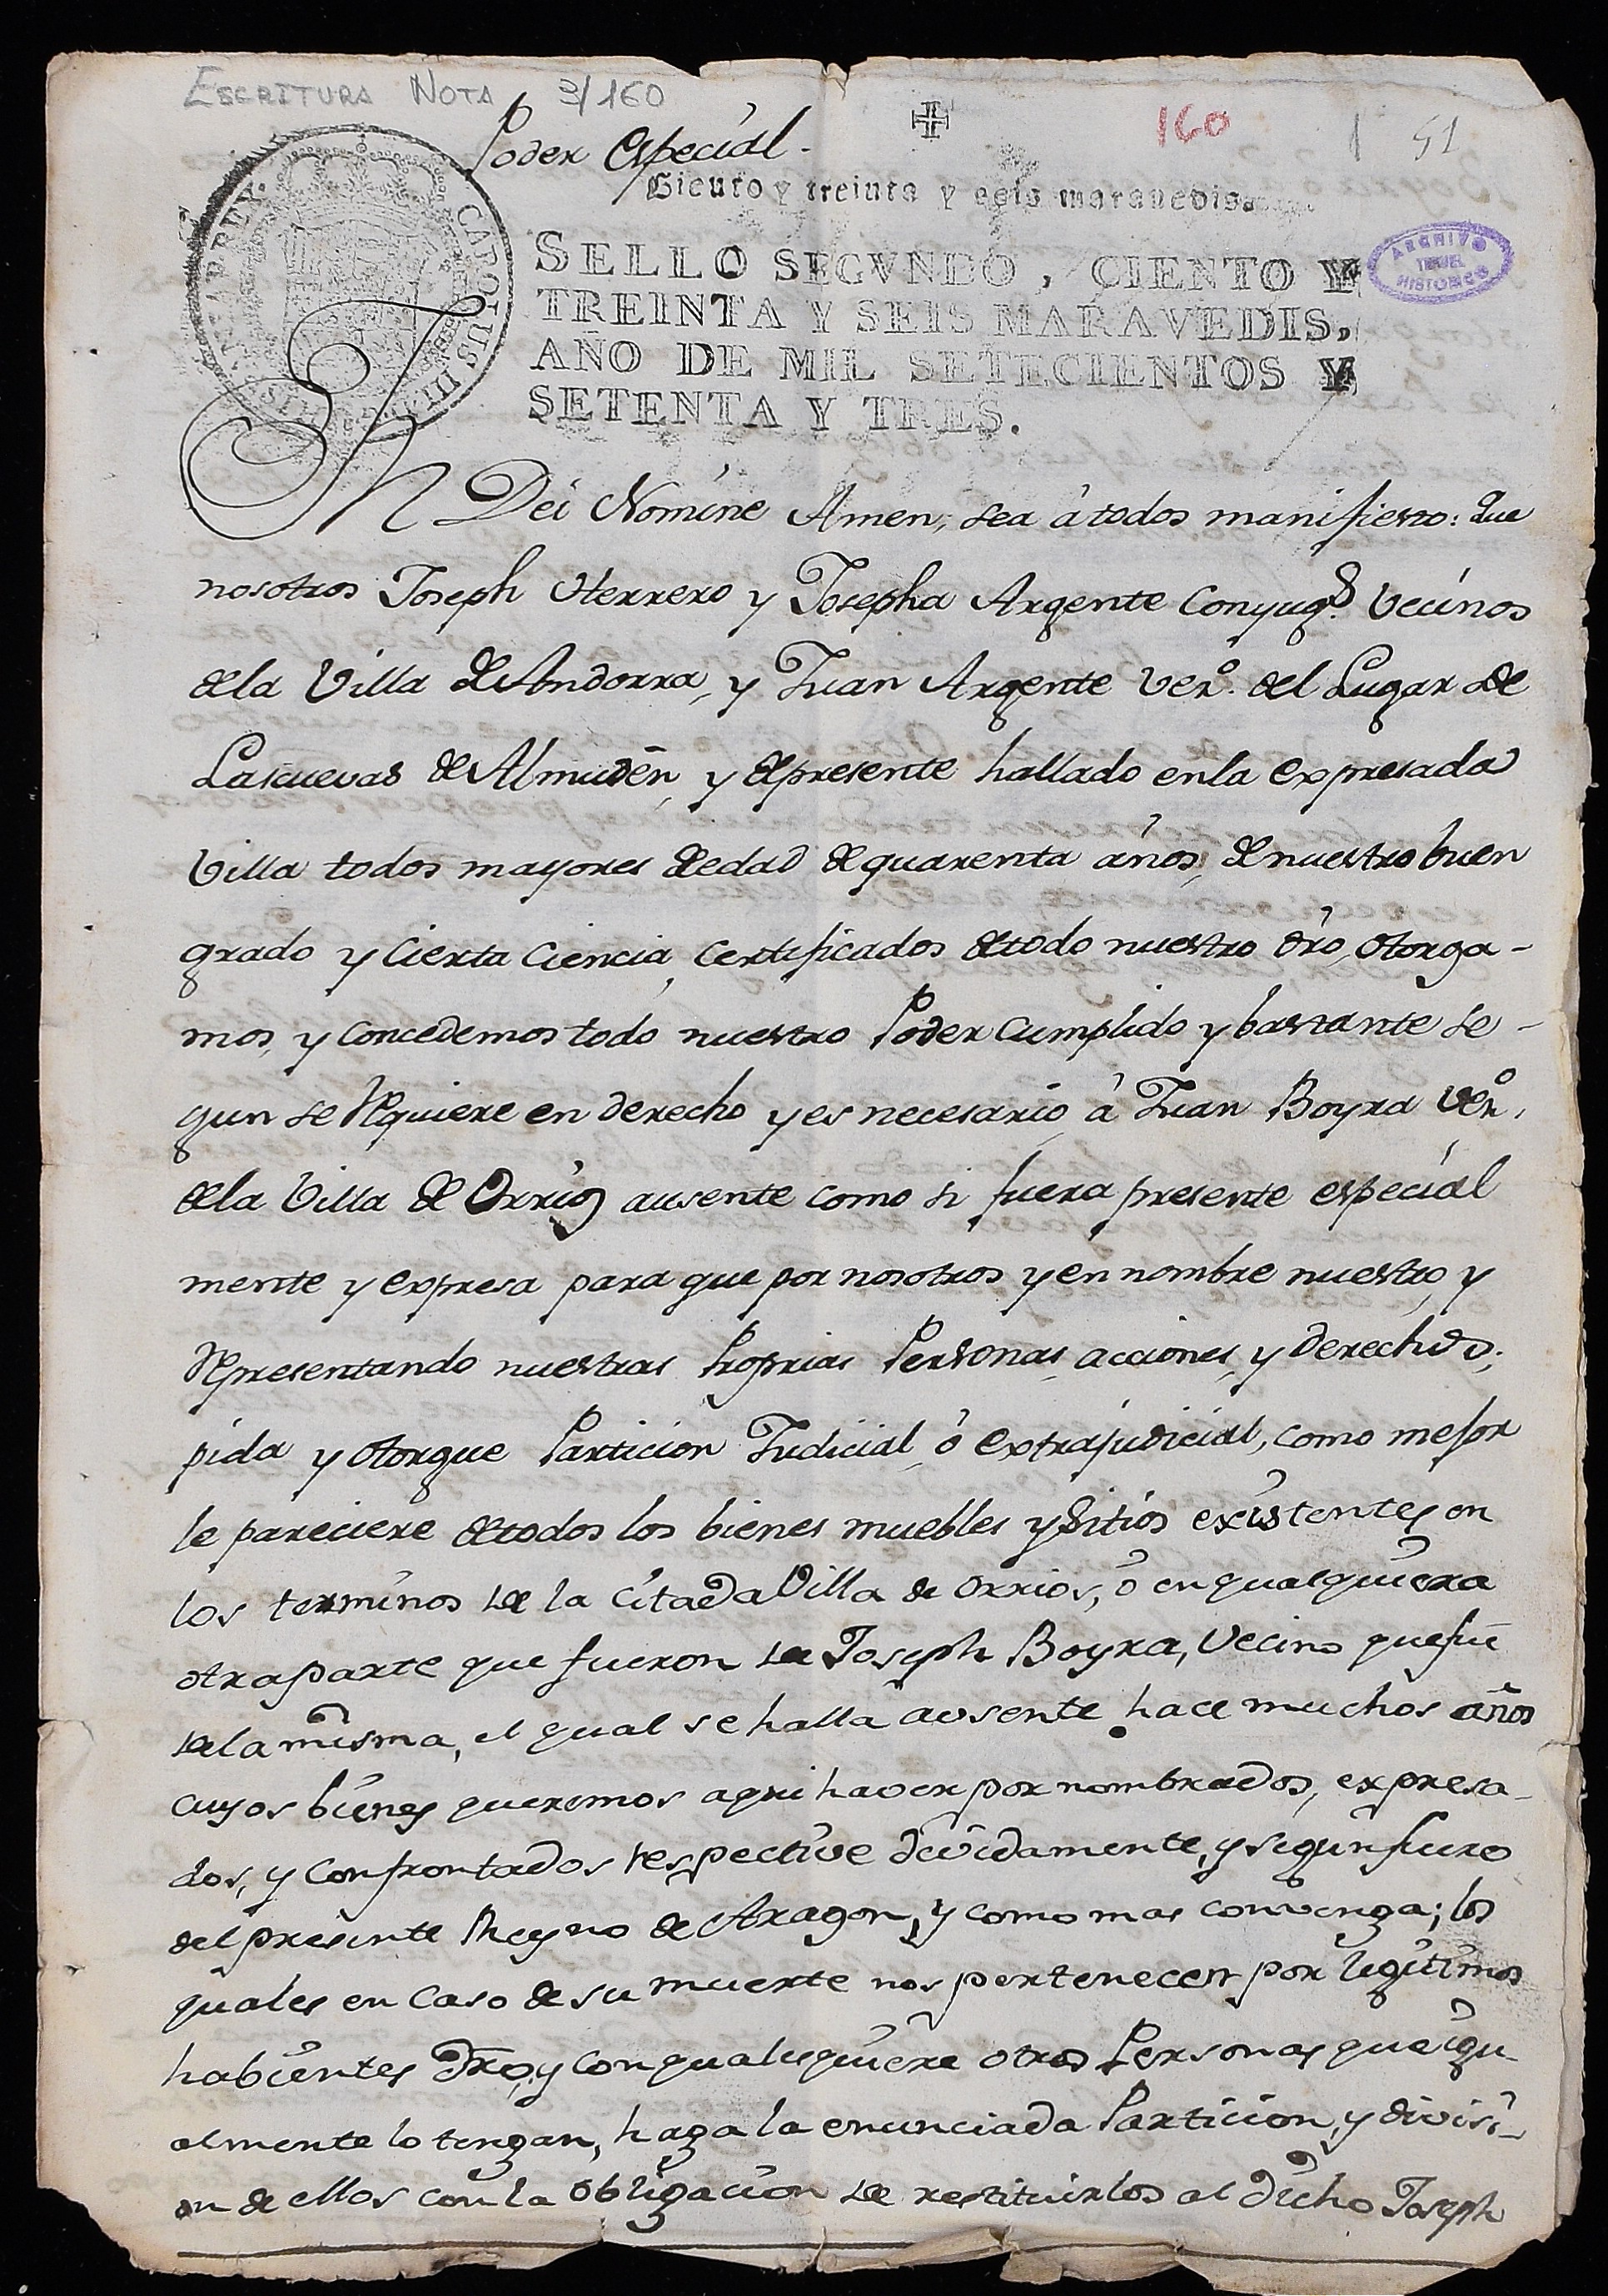 ESCRITURA NOTA 3/160
Poder Especial.
160
1 51
Ciento y treinta y seis maravedis.
CAROLUS III
ARCHIVO
TERUEL
HISTORICO
SELLO SEGVNDO, CIENTO Y
TREINTA Y SEIS MARAVEDIS,
AÑO DE MIL SETECIENTOS Y
SETENTA Y TRES.
IN Dei Nomine Amen, sea à todos manifiesto: que
nosotros Joseph Herrero y Josepha Argente Conyugs. Vecinos
dela Villa de Andorra, y Juan Argente Vezº. del Lugar de
Lascuevas de Almudén, y depresente hallado enla expresada
Villa todos mayores deedad de quarenta años, de nuestro buen
grado y Cierta Ciencia, Certificados detodo nuestro dro, otorga-
mos, y concedemos todo nuestro Poder Cumplido y bastante se-
gun se Requiere en derecho y es necesario à Juan Boyra Vezº.
dela Villa de Orrios ausente como si fuera presente especial
mente y expresa para que por nosotros y en nombre nuestro, y
Representando nuestras Proprias Personas, acciones, y derechos;
pida y otorgue Particion Judicial, ò extrajudicial, como mejor
le pareciere detodos los bienes muebles y sitios existentes en
los terminos de la Citada Villa de Orrios, ò en qualquiera
otra parte que fueron de Joseph Boyra, Vecino que fue
dela misma, el qual se halla ausente hace muchos años
cuyos bienes queremos aqui haver por nombrados, expresa-
dos, y Confrontados respective devidamente, y segun fuero
del presente Reyno de Aragon, y como mas convenga; los
quales en Caso de su muerte nos pertenecen por legitimos
habientes Dro, y con qualesquiere otras Personas que igu-
almente lo tengan, haga la enunciada Particion, y divisi-
on de ellos con la obligacion de restituirlos al dicho Joseph